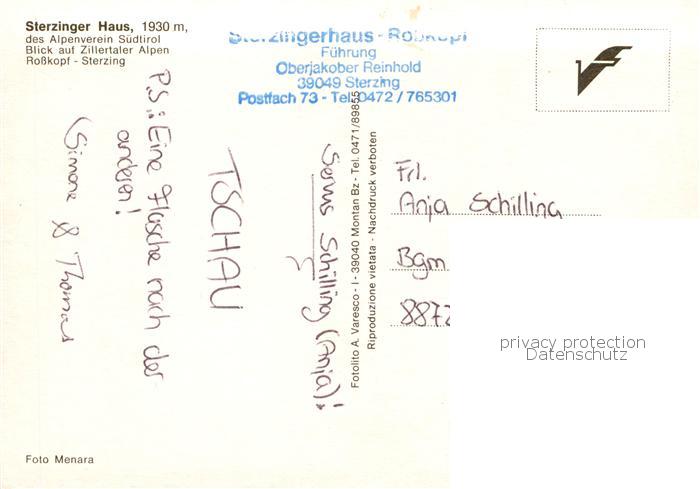 Sterzinger Haus, 1930 m,
des Alpenverein Südtirol
Blick auf Zillertaler Alpen
Roßkopf - Sterzing
Sterzingerhaus - Roßkopf
Führung
Oberjakober Reinhold
39049 Sterzing
Postfach 73 - Tel. 0472 / 765301
Servus Schilling (Anja)!
TSCHAU
P.S.: Eine Flasche nach der
anderen!
(Simone & Thomas
Fotolito A. Varesco - I - 39040 Montan Bz - Tel. 0471/89855
Riproduzione vietata - Nachdruck verboten
Frl.
Anja Schilling
Bgm
8872
privacy protection
Datenschutz
Foto Menara